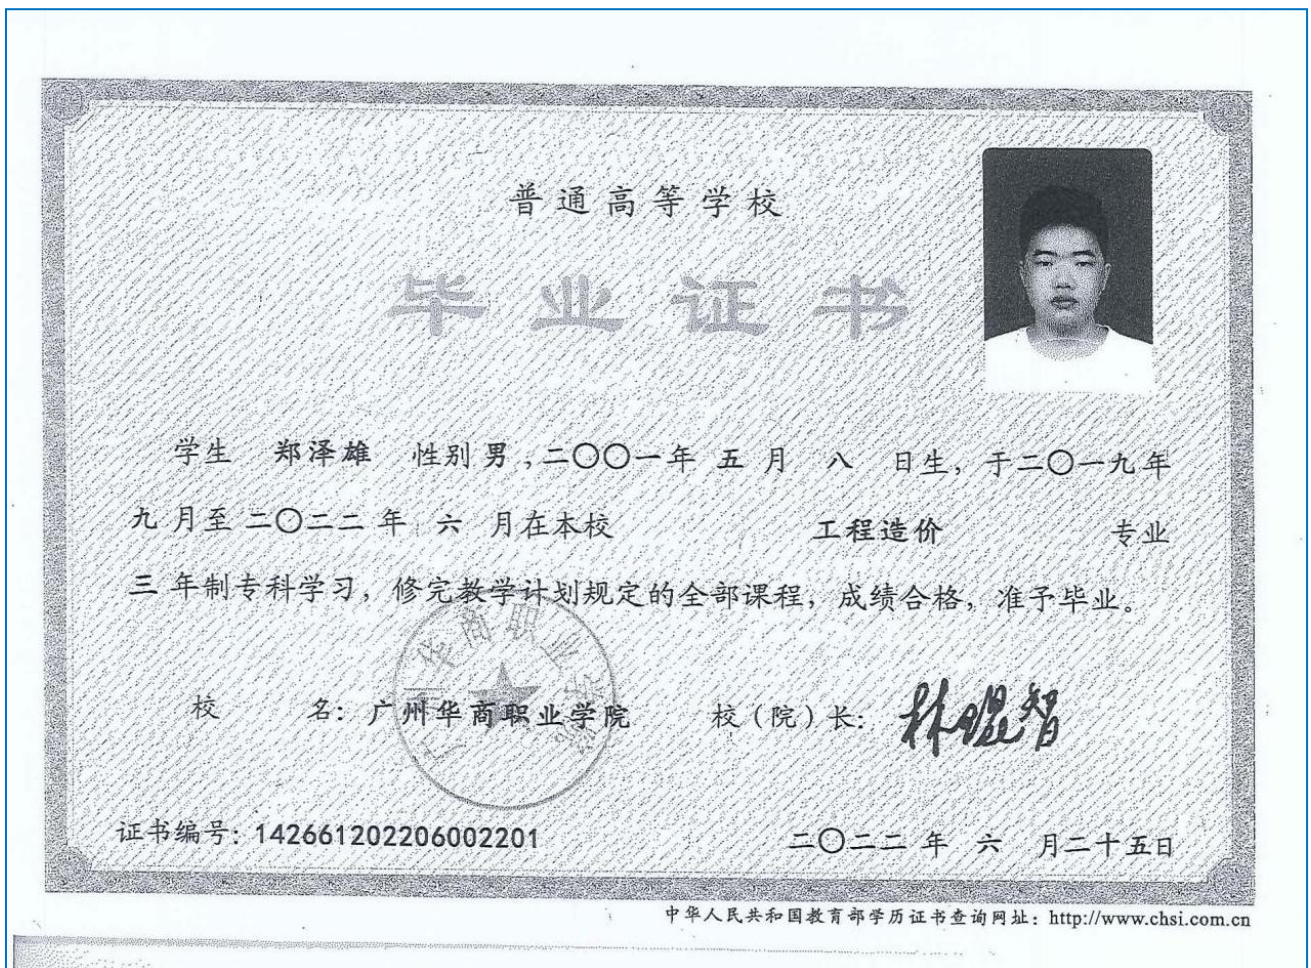 普通高等学校
毕业证书
学生 郑泽雄 性别 男，二〇〇一年 五 月 八 日生，于二〇一九年
九 月至 二〇二二 年 六 月在本校 工程造价 专业
三 年制专科学习，修完教学计划规定的全部课程，成绩合格，准予毕业。
广州华商职业学院
校 名：广州华商职业学院 校（院）长：林鲲智
证书编号：142661202206002201 二〇二二 年 六 月二十五日
中华人民共和国教育部学历证书查询网址：http://www.chsi.com.cn